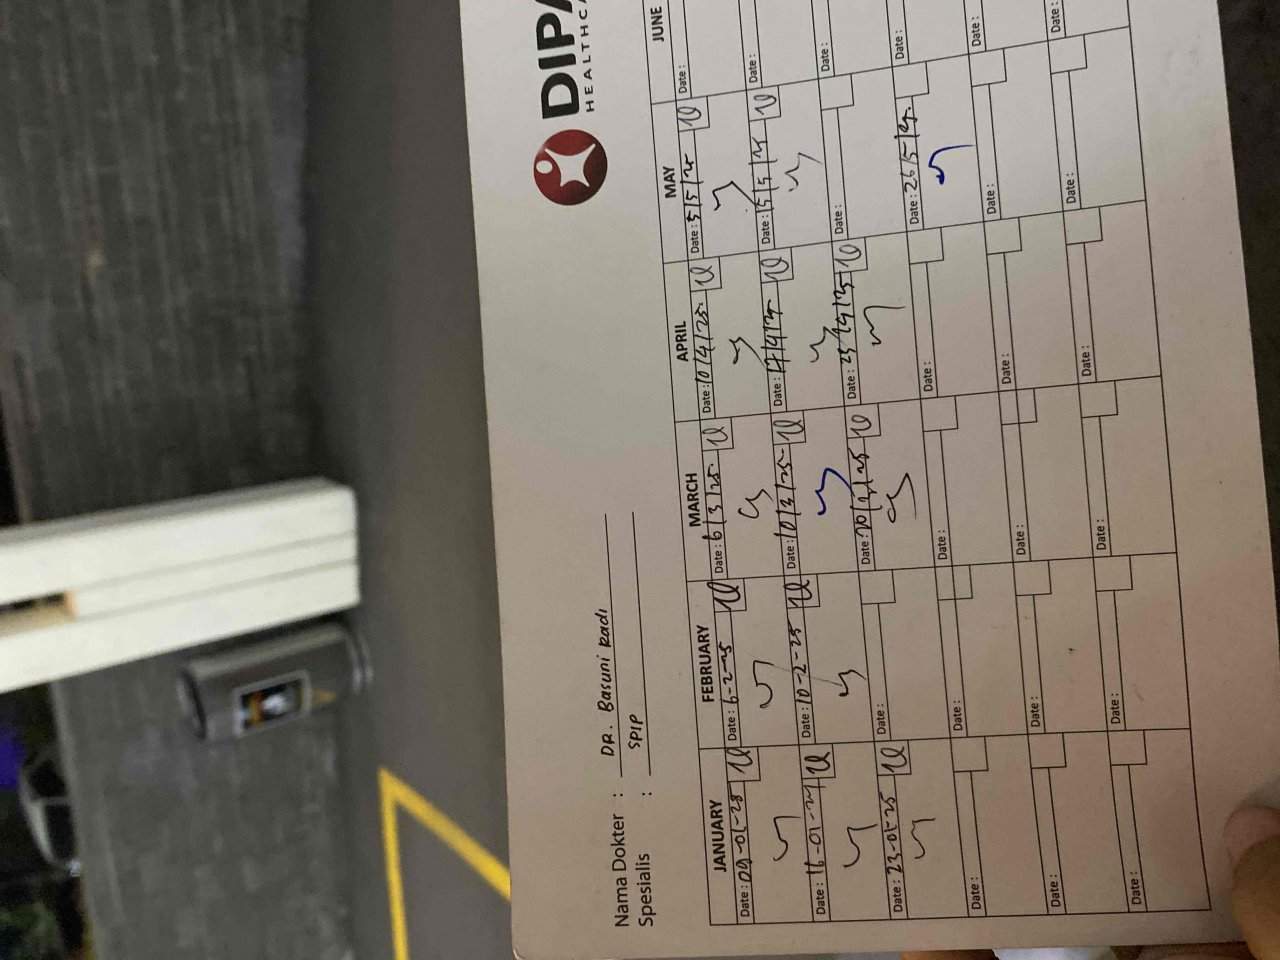 DIPA
HEALTHCA
Nama Dokter : DR. Basuni Radi
Spesialis : SPJP
JANUARY FEBRUARY MARCH APRIL MAY JUNE
Date: 09-01-25 Date: 6-2-25 Date: 6/3/25 Date: 10/4/25 Date: 5/5/25 Date:
Date: 16-01-25 Date: 10-2-25 Date: 10/3/25 Date: 17/4/25 Date: 15/5/25 Date:
Date: 23-01-25 Date: Date: 20/3/25 Date: Date: Date:
Date: Date: Date: Date: Date: 26/5/25 Date:
Date: Date: Date: Date: Date: Date:
Date: Date: Date: Date: Date: Date: